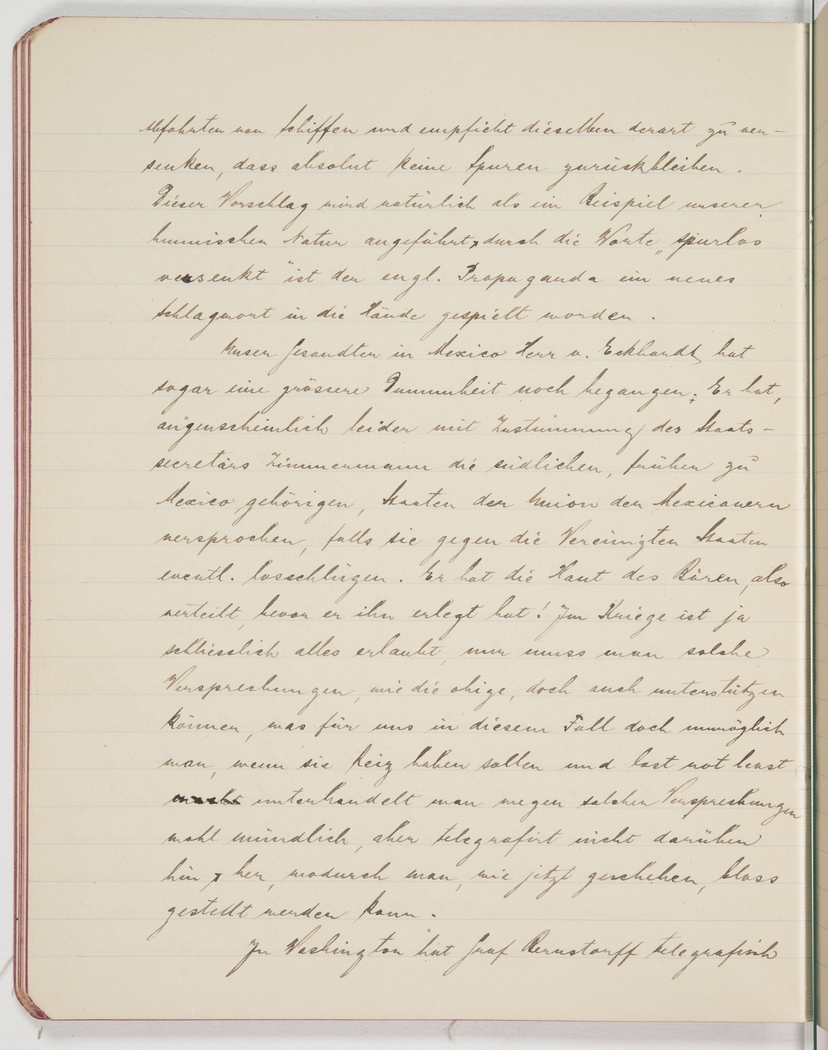 Abfahrten von Schiffen und empfieht dieselben derart zu ver-
senken, dass absolut keine Spuren zurückbleiben.
Dieser Vorschlag wird natürlich als ein Beispiel unserer
hunnischen Natur angeführt, durch die Worte „spurlos
versenkt" ist der engl. Propaganda ein neues
Schlagwort in die Hände gespielt worden.
Unser Gesandter in Mexico Herr v. Eckhardt, hat
sogar eine grössere Dummheit noch begangen. Er hat,
augenscheinlich leider mit Zustimmung des Staats-
secretärs Zimmermann die südlichen, früher zu
Mexico gehörigen, Staaten der Union den Mexicanern
versprochen, falls sie gegen die Vereinigten Staaten
eventl. losschlügen. Er hat die Haut des Bären, also
verteilt, bevor er ihn erlegt hat! Im Kriege ist ja
schliesslich alles erlaubt, nur muss man solche
Versprechungen, wie die obige, doch auch unterstützen
können, was für uns in diesem Fall doch unmöglich
war, wenn sie Reiz haben sollen und last not least
unterhandelt man wegen solcher Versprechungen
wohl mündlich, aber telegrafirt nicht darüber
hin & her, wodurch man, wie jetzt geschehen, bloss
gestellt werden kann.
In Washington hat Graf Bernstorff telegrafisch